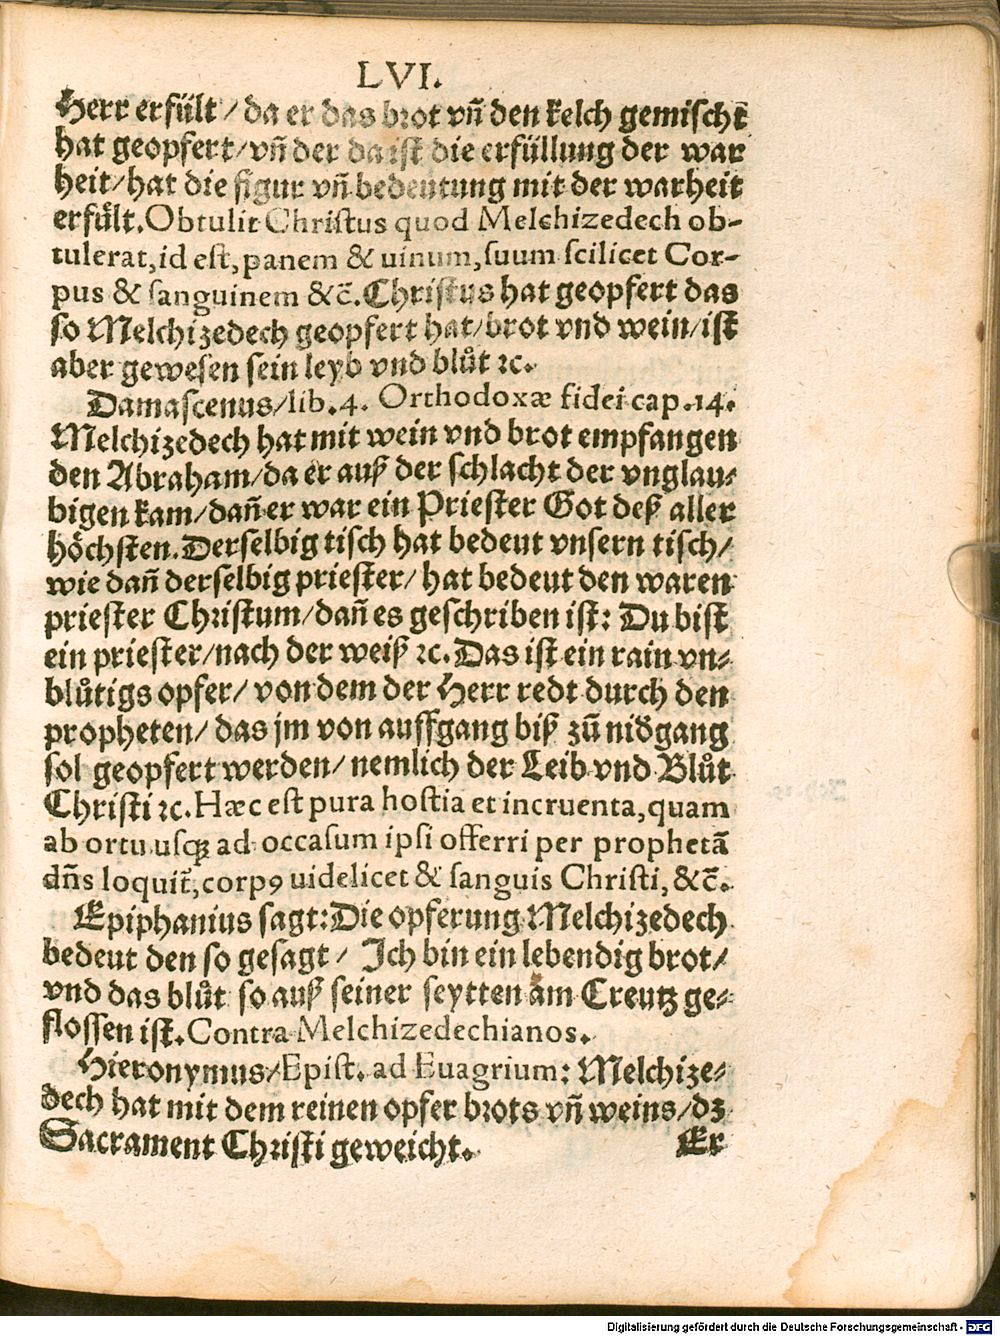 LVI.
Herr erfült / da er das brot vñ den kelch gemischt
hat geopfert/vñ der da ist die erfüllung der war
heit/hat die figur vñ bedeutung mit der warheit
erfuͤlt. Obtulit Christus quod Melchizedech ob-
tulerat, id est, panem & uinum, suum scilicet Cor-
pus & sanguinem &c̃. Christus hat geopfert das
so Melchizedech geopfert hat/brot vnd wein/ist
aber gewesen sein leyb vnd bluͦt ꝛc.
Damascenus/lib.4. Orthodoxæ fidei cap.14.
Melchizedech hat mit wein vnd brot empfangen
den Abraham/da er auß der schlacht der vnglau⸗
bigen kam/dañ er war ein Priester Got deß aller
hoͤchsten. Derselbig tisch hat bedeut vnsern tisch/
wie dañ derselbig priester/ hat bedeut den waren
priester Christum/dañ es geschriben ist: Du bist
ein priester/nach der weiß ꝛc. Das ist ein rain vn⸗
bluͦtigs opfer/ von dem der Herr redt durch den
propheten/ das jm von auffgang biß zũ nidgang
sol geopfert werden/ nemlich der Leib vnd Bluͦt
Christi ꝛc. Hæc est pura hostia et incruenta, quam
ab ortu usqꝫ ad occasum ipsi offerri per prophetã
dñs loquit̃, corpꝰ uidelicet & sanguis Christi, &c̃.
Epiphanius sagt: Die opferung Melchizedech
bedeut den so gesagt / Ich bin ein lebendig brot/
vnd das bluͦt so auß seiner seytten am Creutz ge⸗
flossen ist. Contra Melchizedechianos.
Hieronymus/Epist. ad Euagrium: Melchize⸗
dech hat mit dem reinen opfer brots vñ weins/dz
Sacrament Christi geweicht.
Er
Digitalisierung gefördert durch die Deutsche Forschungsgemeinschaft - DFG